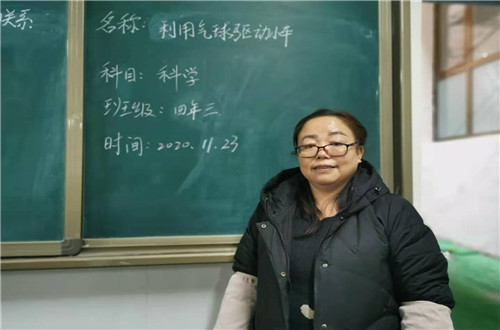 关系
名称: 利用气球驱动小车
科目: 科学
班级: 四年三
时间: 2020.11.23